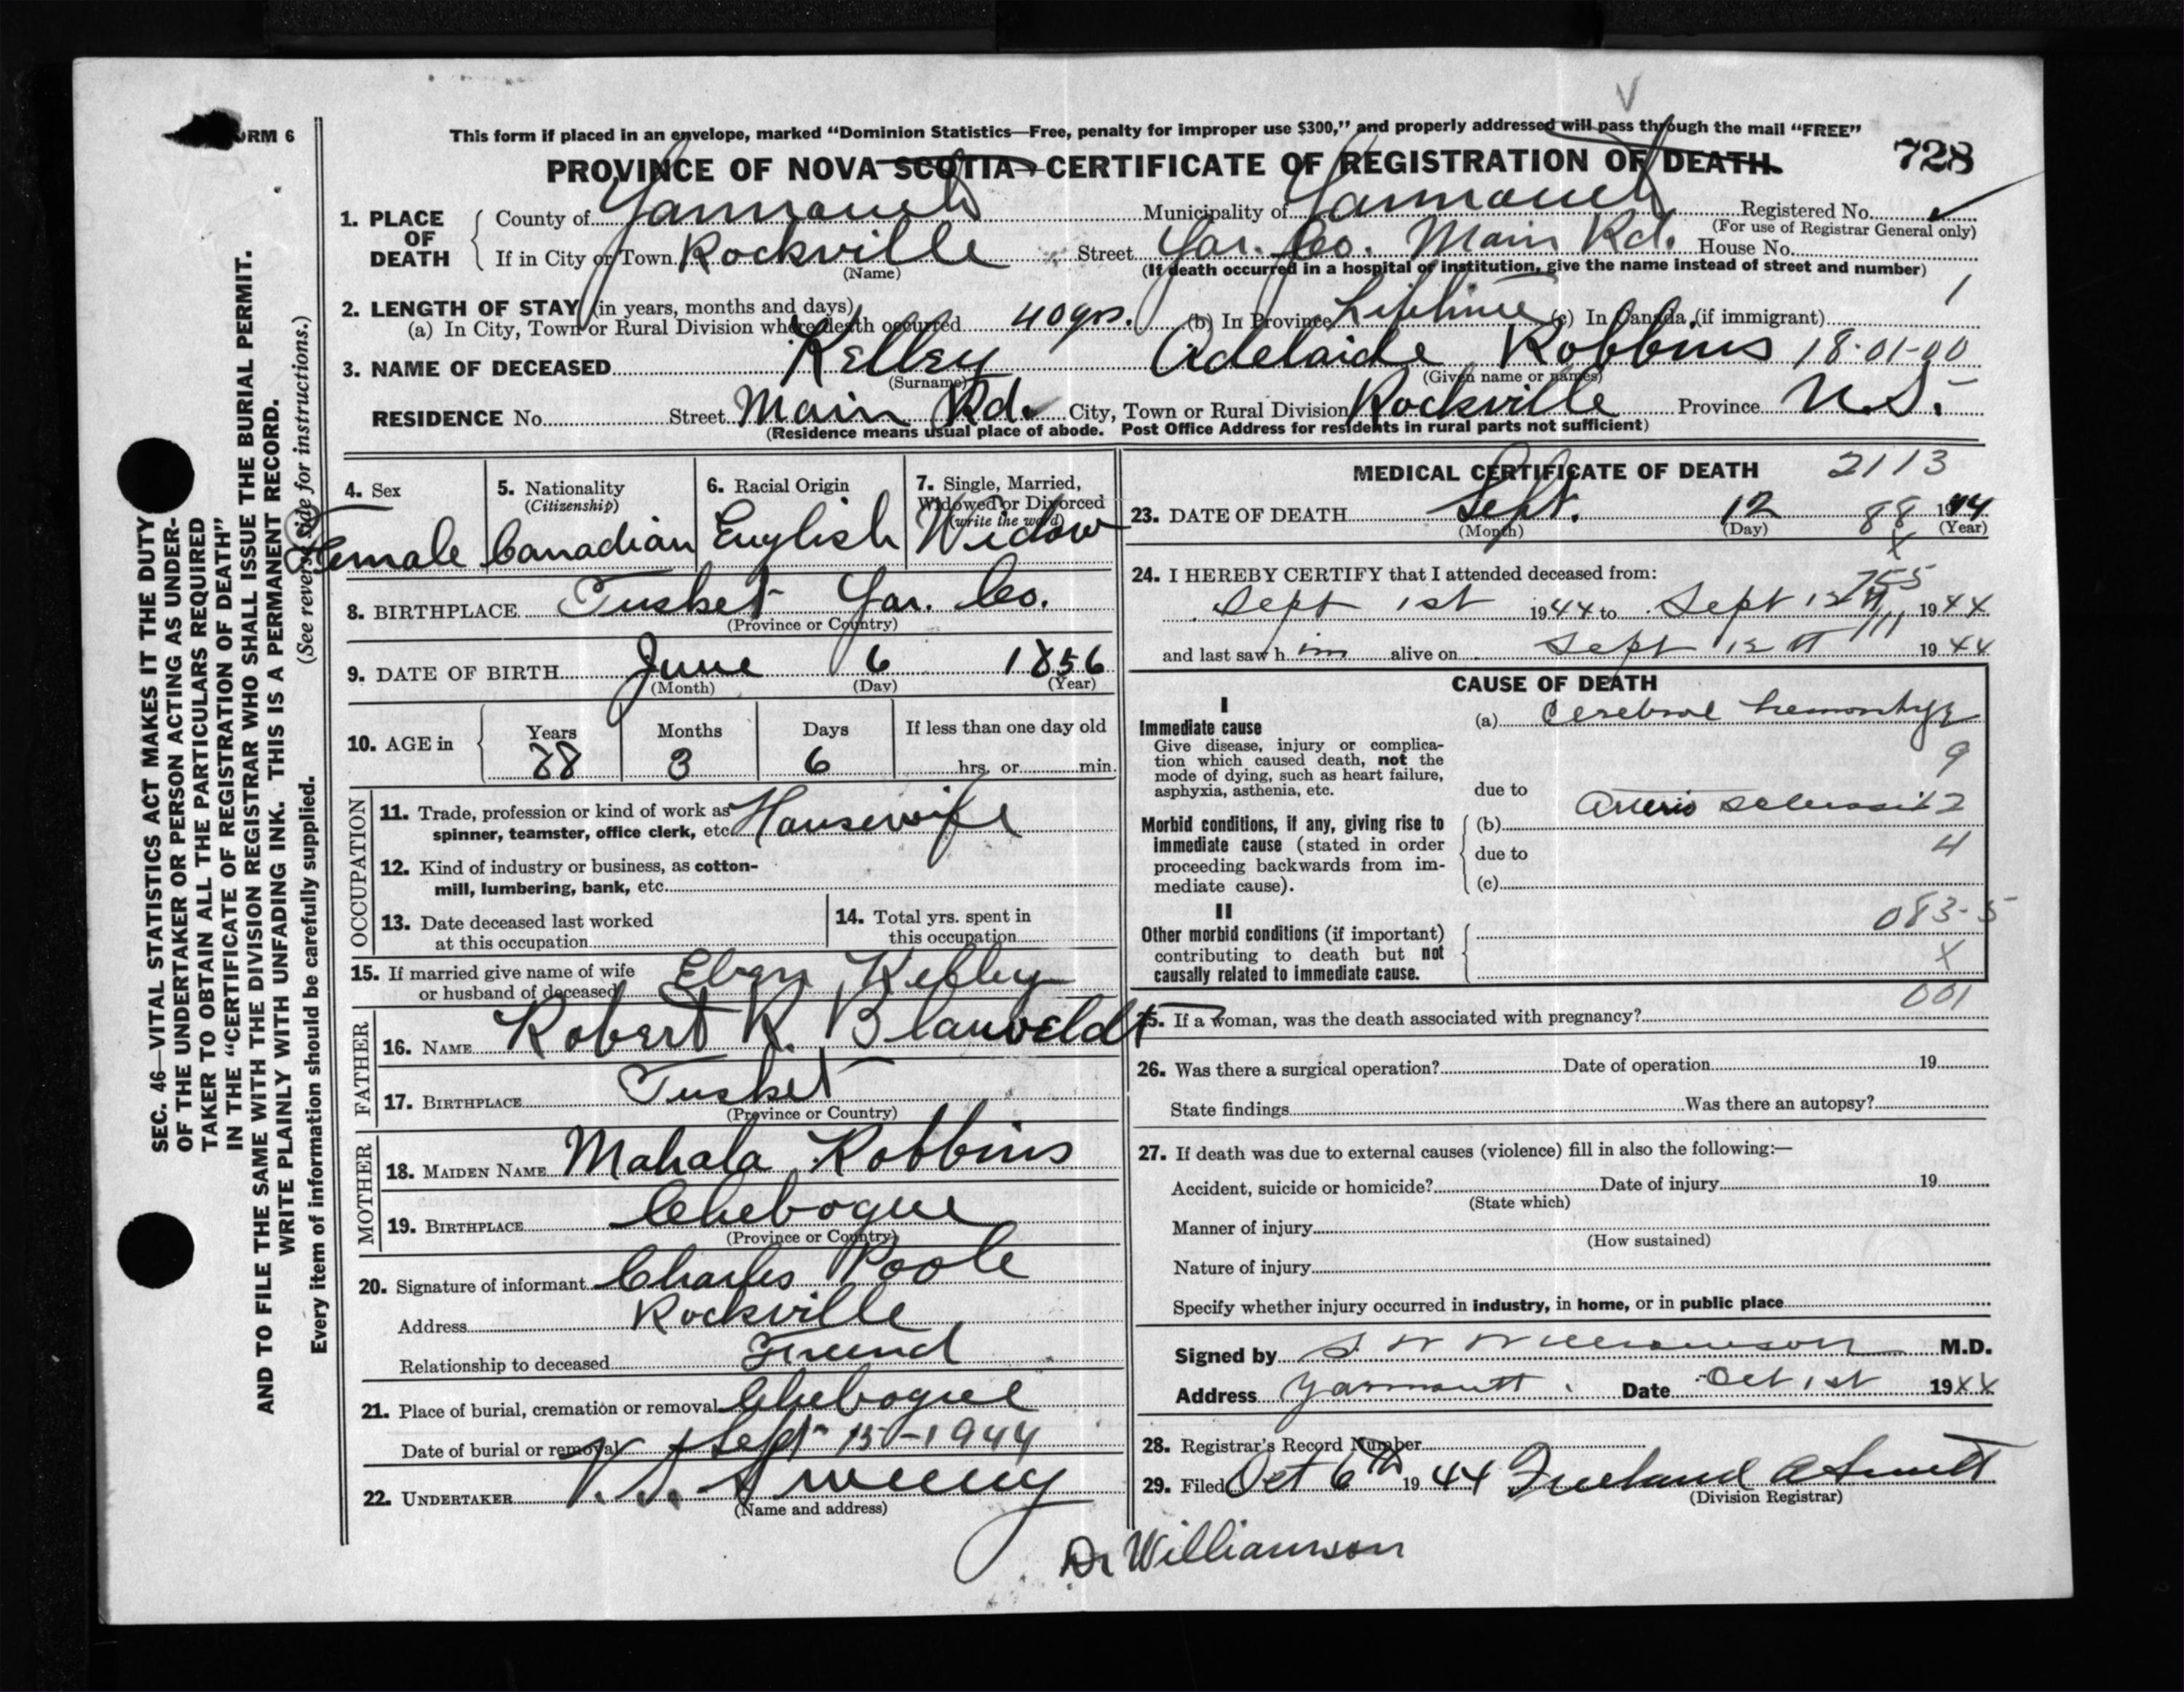 FORM 6
This form if placed in an envelope, marked “Dominion Statistics—Free, penalty for improper use $300,” and properly addressed will pass through the mail “FREE”
PROVINCE OF NOVA SCOTIA—CERTIFICATE OF REGISTRATION OF DEATH. 728
1. PLACE OF DEATH County of Yarmouth Municipality of Yarmouth Registered No.
(For use of Registrar General only)
If in City or Town Rockville Street Yar. Co. Main Rd. House No.
(Name) (If death occurred in a hospital or institution, give the name instead of street and number)
2. LENGTH OF STAY (in years, months and days) 1
(a) In City, Town or Rural Division where death occurred 40 yrs. (b) In Province Lifetime (c) In Canada (if immigrant)
3. NAME OF DECEASED Kelley Adelaide Robbins 18-01-00
(Surname) (Given name or names)
RESIDENCE No. Street Main Rd. City, Town or Rural Division Rockville Province N.S.
(Residence means usual place of abode. Post Office Address for residents in rural parts not sufficient)
SEC. 46—VITAL STATISTICS ACT MAKES IT THE DUTY
OF THE UNDERTAKER OR PERSON ACTING AS UNDER-
TAKER TO OBTAIN ALL THE PARTICULARS REQUIRED
IN THE “CERTIFICATE OF REGISTRATION OF DEATH”
AND TO FILE THE SAME WITH THE DIVISION REGISTRAR WHO SHALL ISSUE THE BURIAL PERMIT.
WRITE PLAINLY WITH UNFADING INK. THIS IS A PERMANENT RECORD.
Every item of information should be carefully supplied. (See reverse side for instructions.)
4. Sex Female
5. Nationality (Citizenship) Canadian
6. Racial Origin English
7. Single, Married, Widowed or Divorced (write the word) Widow
8. BIRTHPLACE Tusket Yar. Co.
(Province or Country)
9. DATE OF BIRTH June 6 1856
(Month) (Day) (Year)
10. AGE in Years 88 Months 3 Days 6 If less than one day old
hrs. or min.
OCCUPATION
11. Trade, profession or kind of work as spinner, teamster, office clerk, etc. Housewife
12. Kind of industry or business, as cotton-
mill, lumbering, bank, etc.
13. Date deceased last worked at this occupation
14. Total yrs. spent in this occupation
15. If married give name of wife or husband of deceased Eben Kelley
FATHER
16. NAME Robert K. Blauveldt
17. BIRTHPLACE Tusket
(Province or Country)
MOTHER
18. MAIDEN NAME Mahala Robbins
19. BIRTHPLACE Chebogue
(Province or Country)
20. Signature of informant Charles Poole
Address Rockville
Relationship to deceased Friend
21. Place of burial, cremation or removal Chebogue
Date of burial or removal Sept 15-1944
22. UNDERTAKER V. S. Sweeny
(Name and address)
MEDICAL CERTIFICATE OF DEATH 2113
23. DATE OF DEATH Sept. 12 88 1944
(Month) (Day) (Year)
X
24. I HEREBY CERTIFY that I attended deceased from: 755
Sept 1st 1944 to Sept 12th 1944
and last saw h im alive on Sept 12th 1944
CAUSE OF DEATH
I
Immediate cause
Give disease, injury or complica-
tion which caused death, not the
mode of dying, such as heart failure,
asphyxia, asthenia, etc.
(a) Cerebral hemorhage
9
due to
Morbid conditions, if any, giving rise to
immediate cause (stated in order
proceeding backwards from im-
mediate cause).
(b) Arterio sclerosis 2
due to 4
(c)
II 083-5
Other morbid conditions (if important)
contributing to death but not
causally related to immediate cause.
X
001
25. If a woman, was the death associated with pregnancy?
26. Was there a surgical operation? Date of operation 19
State findings Was there an autopsy?
27. If death was due to external causes (violence) fill in also the following:—
Accident, suicide or homicide? Date of injury 19
(State which)
Manner of injury
(How sustained)
Nature of injury
Specify whether injury occurred in industry, in home, or in public place
Signed by S W Williamson M.D.
Address Yarmouth. Date Oct 1st 1944
28. Registrar's Record Number
29. Filed Oct 6th 1944 Freeland
(Division Registrar)
Dr Williamson